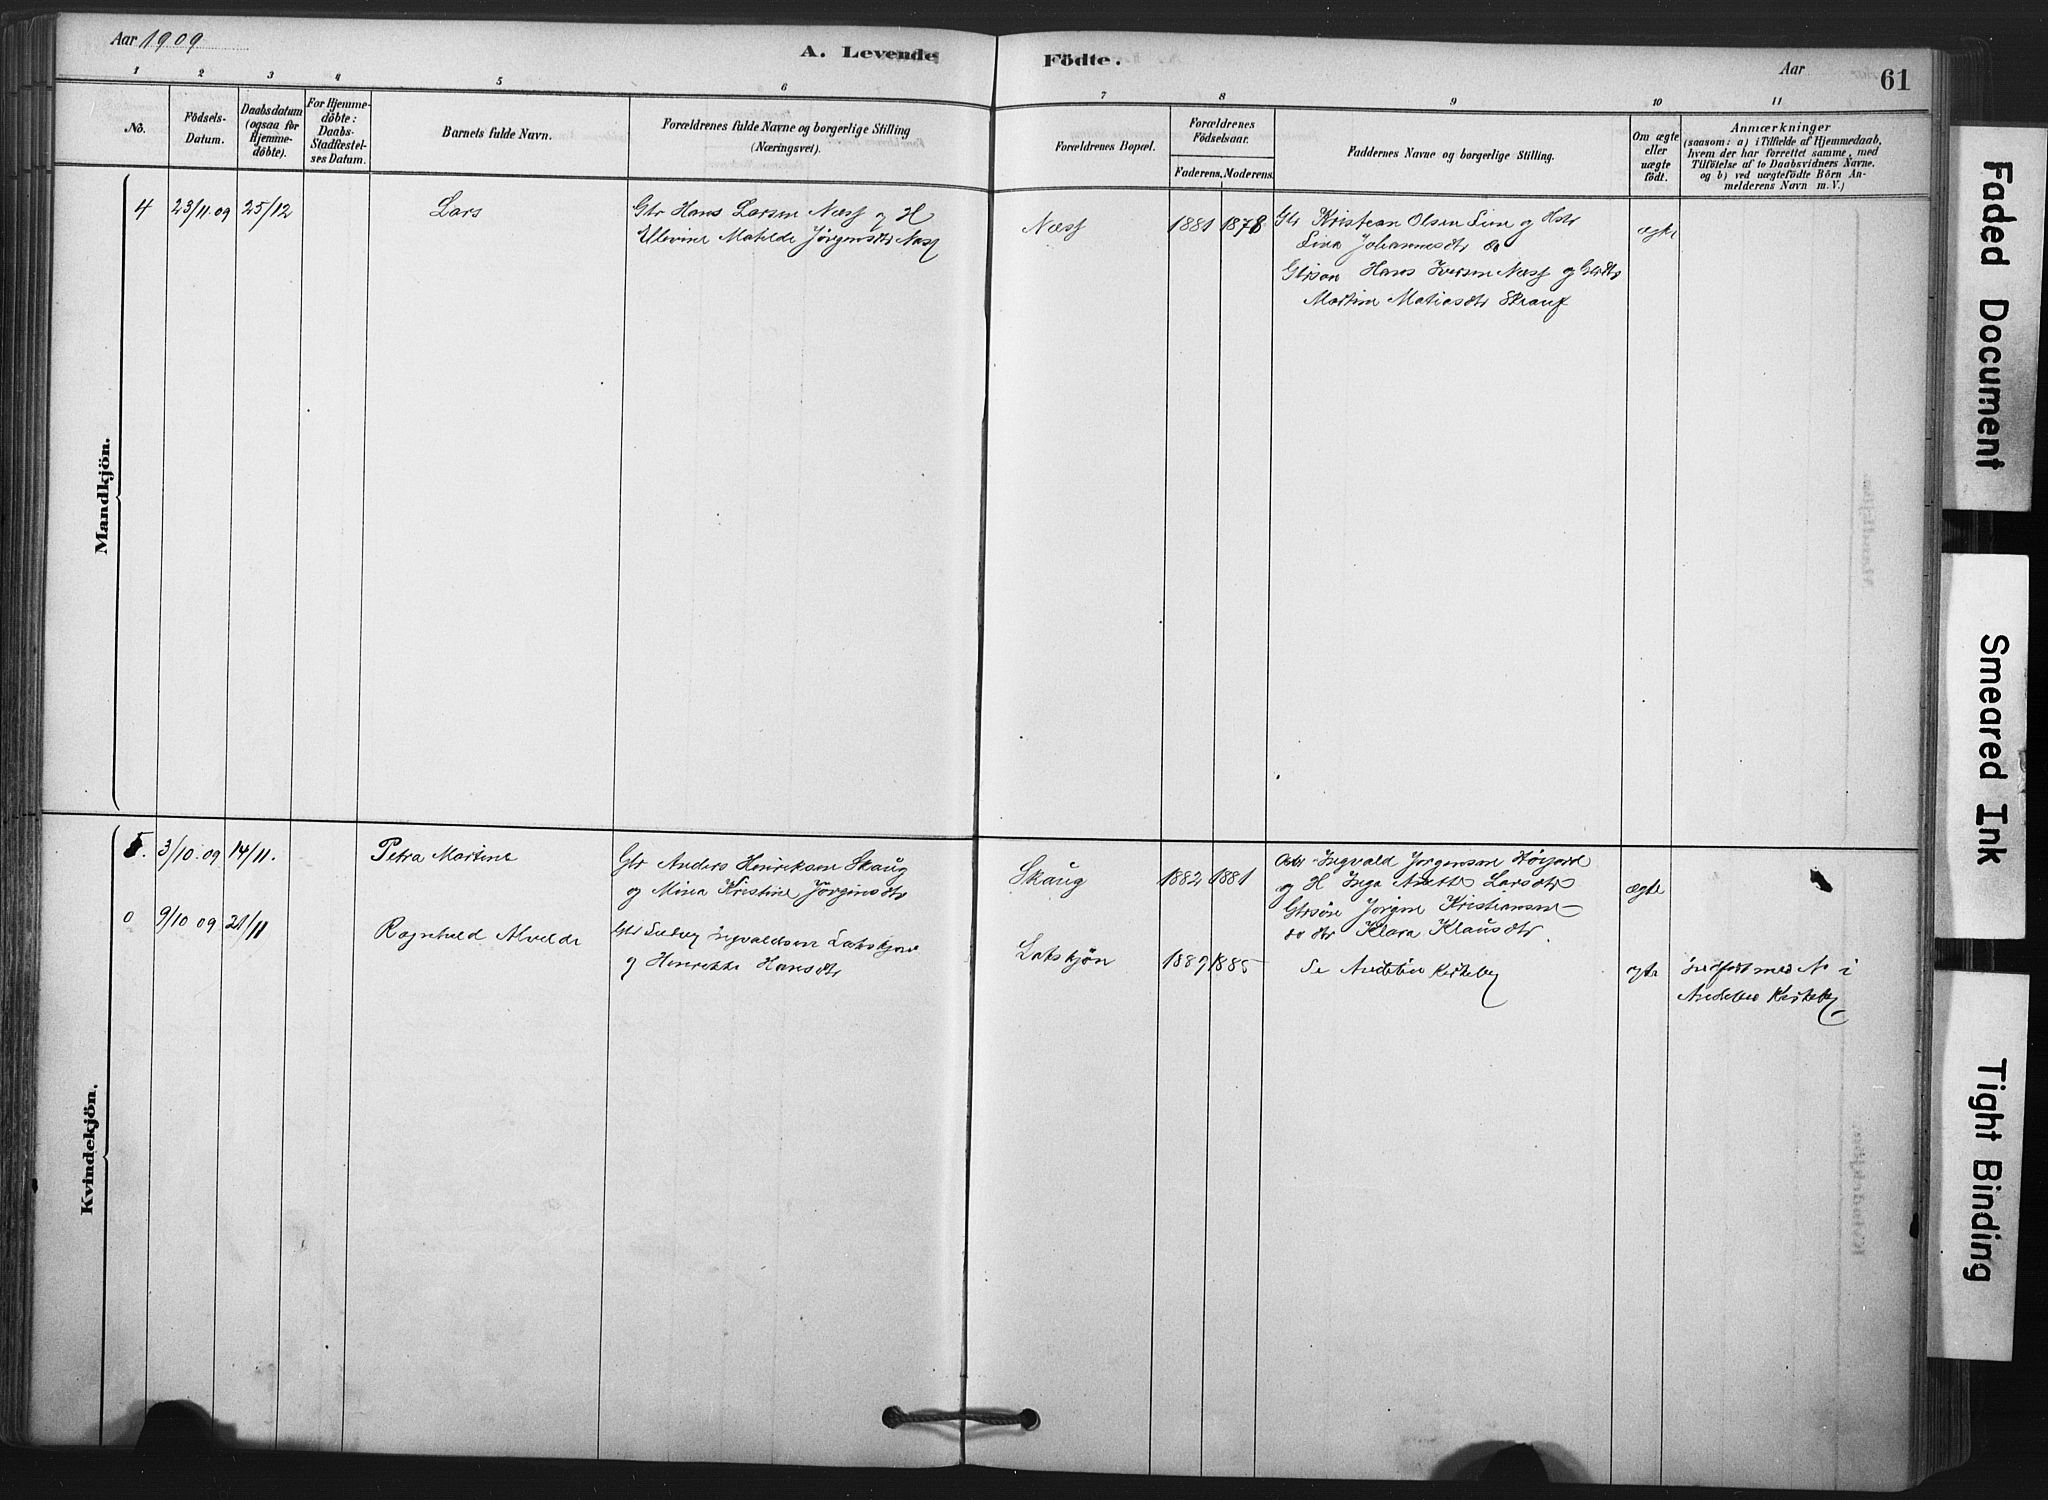 Aar 1909
A. Levende Födte.
Aar
61
1 2 3 4 5 6 7 8 9 10 11
No.
Födsels-Datum.
Daabsdatum (ogsaa for Hjemme-döbte).
For Hjemme-döbte: Daabs-Stadfæstel-ses Datum.
Barnets fulde Navn.
Forældrenes fulde Navne og borgerlige Stilling (Næringsvei).
Forældrenes Bopæl.
Forældrenes Födselsaar.
Faderens. Moderens.
Faddernes Navne og borgerlige Stilling.
Om ægte eller uægte födt.
Anmærkninger
(saasom: a) i Tilfælde af Hjemmedaab,
hvem der har forrettet samme, med
Tilföielse af to Daabsvidners Navne.
og b) ved uægtefödte Börn An-
melderens Navn m. V.)
Mandkjön.
4 23/11 09 25/12 Lars
Gbr Hans Larsen Næss og H
Ellevine Matilde Jörgensdtr Næss
Næss 1881 1878
Gbr Kristean Olsen og Hstr
Lina Johannesdtr
Gbrsøn Hans Iversen Næss og
Martine Matiasdtr
ægte
Kvindekjön.
5. 3/10.09 14/11. Petra Martine
Gbr Anders Henriksen Skaug
og Mina Kristine Jörginsdtr
Skaug 1882 1881
Ingvald Jorgensen
og H Inga Anette Larsdtr
Gbrsön Jörgen Kristiansen
do dtr Klara Klausdtr
ægte
0 9/10 09 21/11 Ragnhild Alvilde
Gbr Ludvig Ingvaldsen
og Henrikke Hansdtr
1885
Se Andebu Kirkebog
ægte
Indført med No i
Andebu Kirkebog
Faded Document
Smeared Ink
Tight Binding